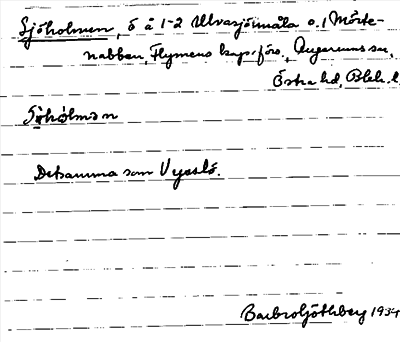 Sjöholmen, ö å 1-2 Ulvasjömåla o. 1 Mörte-
nabben, Flymens kapförs., Augerums sn,
Östra hd, Blek. l.
Detsamma som Vyssö.
Barbro Göthberg 1934